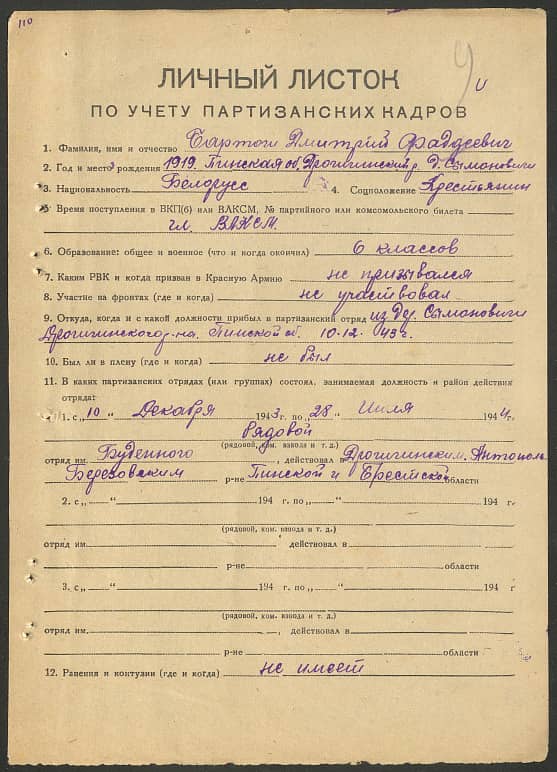 110
ЛИЧНЫЙ ЛИСТОК
ПО УЧЕТУ ПАРТИЗАНСКИХ КАДРОВ
1. Фамилия, имя и отчество Бартош Дмитрий Фаддеевич
2. Год и место рождения 1919. Пинская об. Дрогичинский р. д. Сымоновичи
3. Национальность Белорусс 4. Соцположение Крестьянин
5. Время поступления в ВКП(б) или ВЛКСМ, № партийного или комсомольского билета
чл. ВЛКСМ.
6. Образование: общее и военное (что и когда окончил) 6 классов
7. Каким РВК и когда призван в Красную Армию не призывался
8. Участие на фронтах (где и когда) не участвовал
9. Откуда, когда и с какой должности прибыл в партизанский отряд из Дер Сымоновичи
Дрогичинского р-на. Пинской об. 10.12.43г.
10. Был ли в плену (где и когда) не был
11. В каких партизанских отрядах (или группах) состоял, занимаемая должность и район действия
отряда:
1. с „10" Декабря 1943 г. по „28" Июля 1944 г.
рядовой
(рядовой, ком. взвода и т. д.)
отряд им. Буденного, действовал в Дрогичинским. Антополь
Березовским р-не Пинской и Брестской области
2. с „ " 194 г. по „ " 194 г.
(рядовой, ком. взвода и т. д.)
отряд им. действовал в
р-не области
3. с „ " 194 г. по „ " 194 г
(рядовой, ком. взвода и т. д.)
отряд им. , действовал в
р-не области
12. Ранения и контузии (где и когда) не имеет